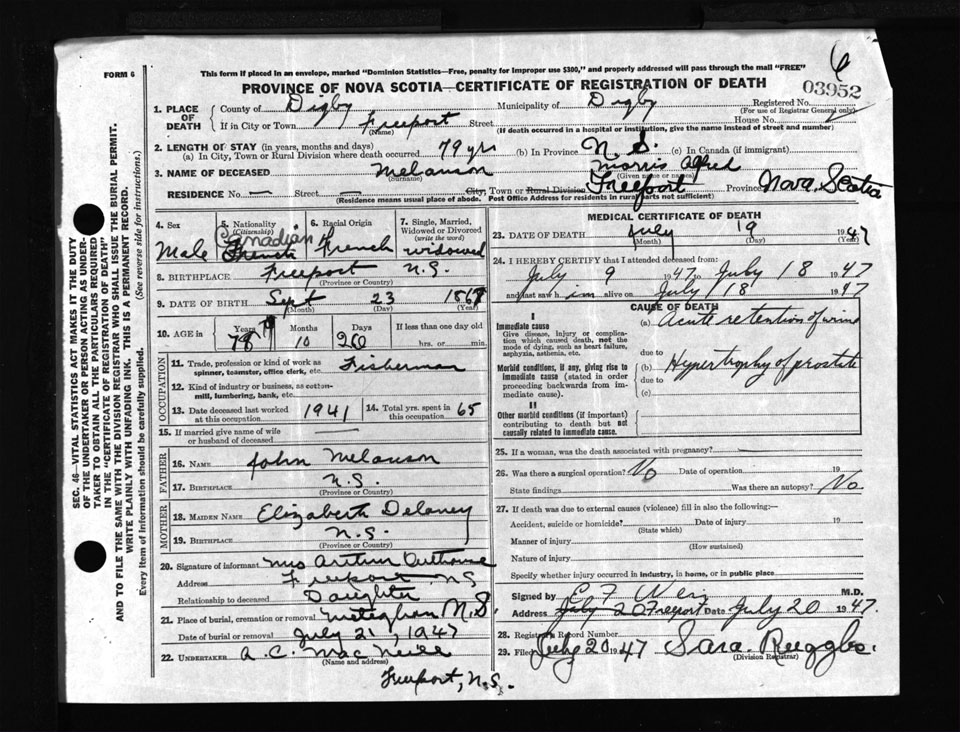 6
FORM 6
This form if placed in an envelope, marked "Dominion Statistics—Free, penalty for improper use $300," and properly addressed will pass through the mail "FREE"
PROVINCE OF NOVA SCOTIA—CERTIFICATE OF REGISTRATION OF DEATH
03952
1. PLACE OF DEATH
County of Digby Municipality of Digby Registered No.
(For use of Registrar General only)
If in City or Town Freeport Street House No.
(Name) (If death occurred in a hospital or institution, give the name instead of street and number)
2. LENGTH OF STAY (in years, months and days)
(a) In City, Town or Rural Division where death occurred 79 yrs (b) In Province N S. (c) In Canada (if immigrant)
3. NAME OF DECEASED Melanson Morris Alfred
(Surname) (Given name or names)
RESIDENCE No. — Street — City, Town or Rural Division Freeport Province Nova Scotia
(Residence means usual place of abode. Post Office Address for residents in rural parts not sufficient)
4. Sex Male
5. Nationality (Citizenship) Canadian French
6. Racial Origin French
7. Single, Married, Widowed or Divorced (write the word) widowed
8. BIRTHPLACE Freeport N.S.
(Province or Country)
9. DATE OF BIRTH Sept 23 186
(Month) (Day) (Year)
10. AGE in Years 78 79 Months 10 Days If less than one day old hrs. or min.
OCCUPATION
11. Trade, profession or kind of work as spinner, teamster, office clerk, etc. Fisherman
12. Kind of industry or business, as cotton-mill, lumbering, bank, etc.
13. Date deceased last worked at this occupation 1941
14. Total yrs. spent in this occupation 65
15. If married give name of wife or husband of deceased —
FATHER
16. NAME John Melanson
17. BIRTHPLACE N.S.
(Province or Country)
MOTHER
18. MAIDEN NAME Elizabeth Delaney
19. BIRTHPLACE N.S.
(Province or Country)
20. Signature of informant Mrs Arthur
Address Freeport NS
Relationship to deceased Daughter
21. Place of burial, cremation or removal Meteghan N.S.
Date of burial or removal July 21, 1947
22. UNDERTAKER A.C. MacNeill
(Name and address)
Freeport, N.S.
MEDICAL CERTIFICATE OF DEATH
23. DATE OF DEATH July 19 1947
(Month) (Day) (Year)
24. I HEREBY CERTIFY that I attended deceased from:
July 9 1947 to July 18 1947
and last saw him alive on July 18 1947
CAUSE OF DEATH
I
Immediate cause
Give disease, injury or complication which caused death, not the mode of dying, such as heart failure, asphyxia, asthenia, etc.
(a) Acute retention of urine
due to
Morbid conditions, if any, giving rise to immediate cause (stated in order proceeding backwards from immediate cause).
(b) Hypertrophy of prostate
due to
(c)
II
Other morbid conditions (if important) contributing to death but not causally related to immediate cause.
25. If a woman, was the death associated with pregnancy? —
26. Was there a surgical operation? No Date of operation 19
State findings Was there an autopsy? No
27. If death was due to external causes (violence) fill in also the following:—
Accident, suicide or homicide? Date of injury 19
(State which)
Manner of injury
(How sustained)
Nature of injury
Specify whether injury occurred in industry, in home, or in public place
Signed by E F Weir M.D.
Address July 20 Freeport Date July 20 1947.
28. Registrar's Record Number
29. Filed July 20 1947 Sara Ruggles.
(Division Registrar)
SEC. 46—VITAL STATISTICS ACT MAKES IT THE DUTY
OF THE UNDERTAKER OR PERSON ACTING AS UNDER-
TAKER TO OBTAIN ALL THE PARTICULARS REQUIRED
IN THE "CERTIFICATE OF REGISTRATION OF DEATH"
AND TO FILE THE SAME WITH THE DIVISION REGISTRAR WHO SHALL ISSUE THE BURIAL PERMIT.
WRITE PLAINLY WITH UNFADING INK. THIS IS A PERMANENT RECORD.
Every item of information should be carefully supplied. (See reverse side for instructions.)